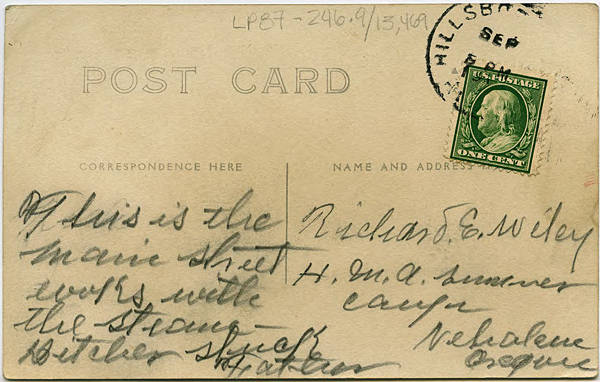 LP87-246.9/13,469
POST CARD
HILLSBO
SEP
PM
U.S. POSTAGE
ONE CENT
CORRESPONDENCE HERE
NAME AND ADDRESS
This is the
main street
works with
the steam
Ditcher stuck
Richard. E. Wiley
H. M. A. summer
camp
Nehalem
Oregon